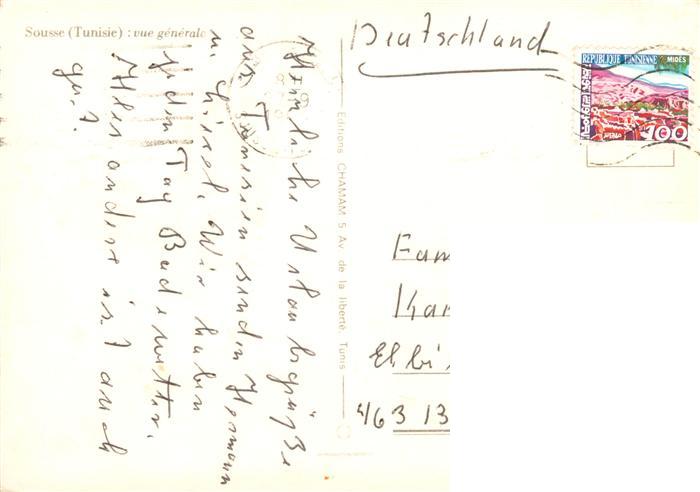 Sousse (Tunisie) : vue générale
Herzliche Urlaubsgrüße
aus Tunesien senden Hermann
u. Christel. Wir haben
jeden Tag Badewetter.
Alles andere ist auch
gut.
Editions CHAMAM 5 Av de la liberté Tunis
Deutschland
REPUBLIQUE TUNISIENNE
MIDÈS
100
Fam
Kar
Elbi
463 13